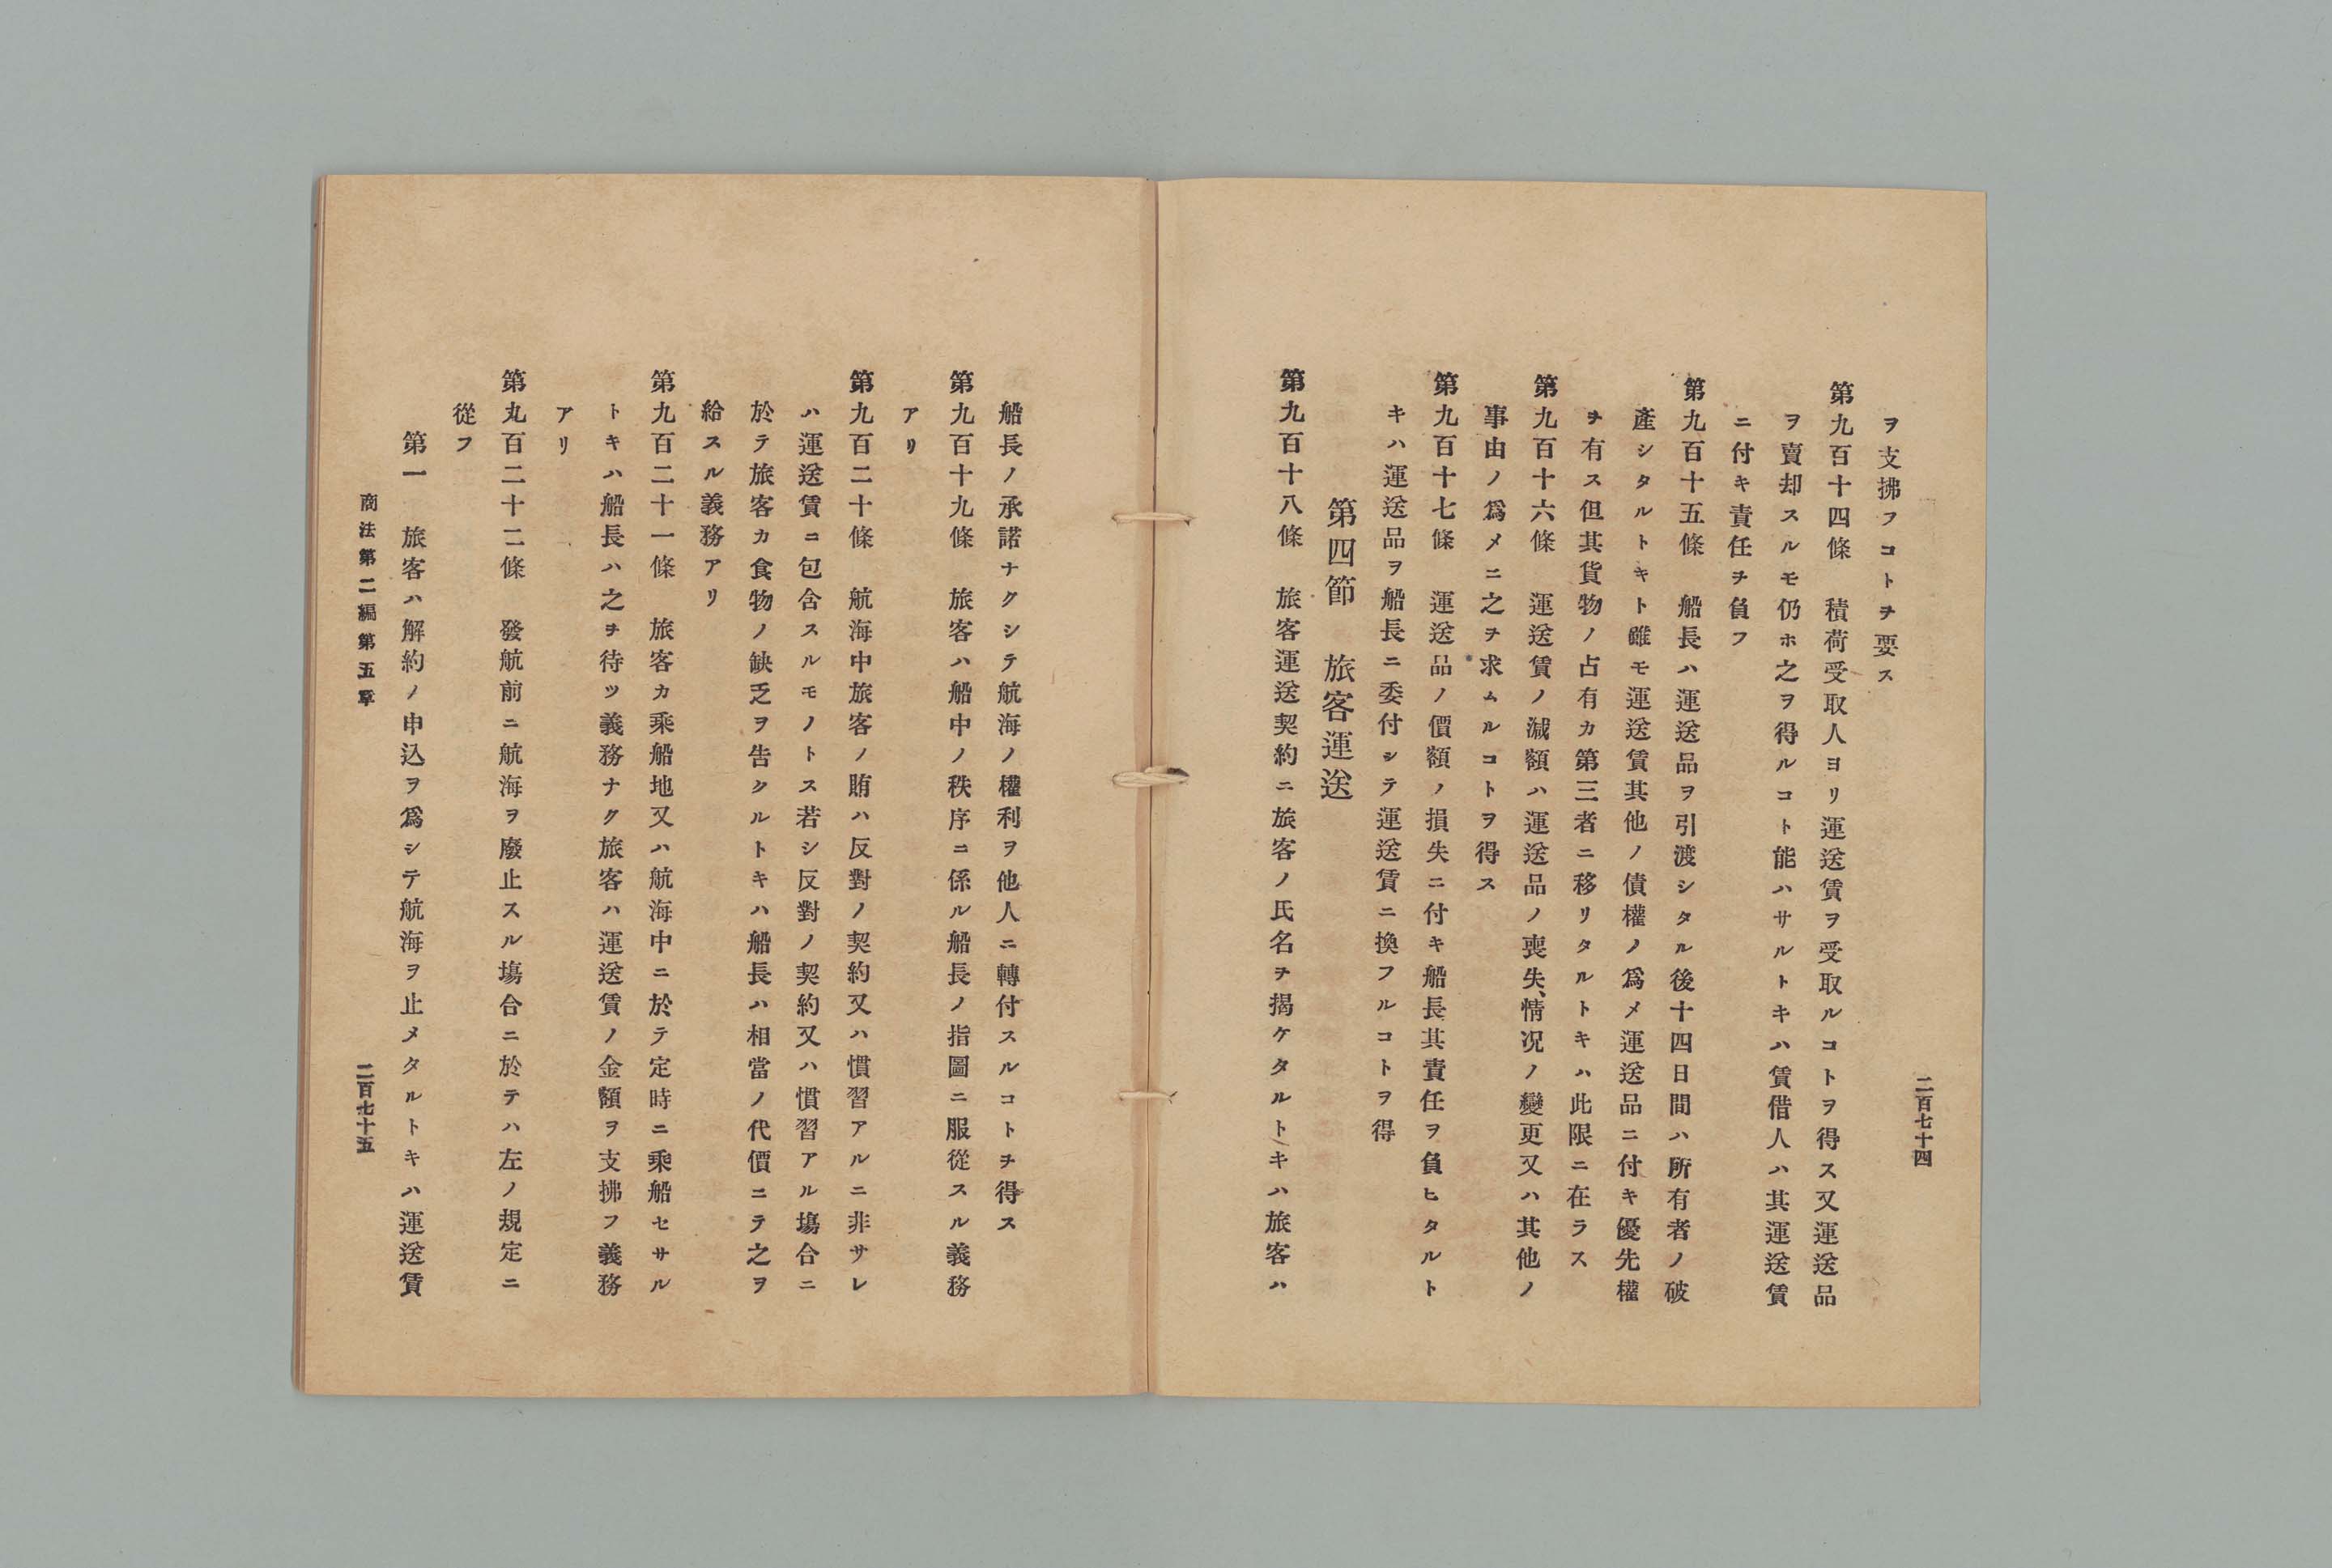 二百七十四
ヲ支拂フコトヲ要ス
第九百十四條　積荷受取人ヨリ運送賃ヲ受取ルコトヲ得ス又運送品
ヲ賣却スルモ仍ホ之ヲ得ルコト能ハサルトキハ賃借人ハ其運送賃
ニ付キ責任ヲ負フ
第九百十五條　船長ハ運送品ヲ引渡シタル後十四日間ハ所有者ノ破
產シタルトキト雖モ運送賃其他ノ債權ノ爲メ運送品ニ付キ優先權
ヲ有ス但其貨物ノ占有カ第三者ニ移リタルトキハ此限ニ在ラス
第九百十六條　運送賃ノ減額ハ運送品ノ喪失、情况ノ變更又ハ其他ノ
事由ノ爲メニ之ヲ求ムルコトヲ得ス
第九百十七條　運送品ノ價額ノ損失ニ付キ船長其責任ヲ負ヒタルト
キハ運送品ヲ船長ニ委付シテ運送賃ニ換フルコトヲ得
第四節　旅客運送
第九百十八條　旅客運送契約ニ旅客ノ氏名ヲ揭ケタルトキハ旅客ハ
船長ノ承諾ナクシテ航海ノ權利ヲ他人ニ轉付スルコトヲ得ス
第九百十九條　旅客ハ船中ノ秩序ニ係ル船長ノ指圖ニ服從スル義務
アリ
第九百二十條　航海中旅客ノ賄ハ反對ノ契約又ハ慣習アルニ非サレ
ハ運送賃ニ包含スルモノトス若シ反對ノ契約又ハ慣習アル塲合ニ
於テ旅客カ食物ノ缺乏ヲ吿クルトキハ船長ハ相當ノ代價ニテ之ヲ
給スル義務アリ
第九百二十一條　旅客カ乘船地又ハ航海中ニ於テ定時ニ乘船セサル
トキハ船長ハ之ヲ待ツ義務ナク旅客ハ運送賃ノ金額ヲ支拂フ義務
アリ
第九百二十二條　發航前ニ航海ヲ廢止スル塲合ニ於テハ左ノ規定ニ
從フ
第一　旅客ハ解約ノ申込ヲ爲シテ航海ヲ止メタルトキハ運送賃
商法第二編第五章
二百七十五